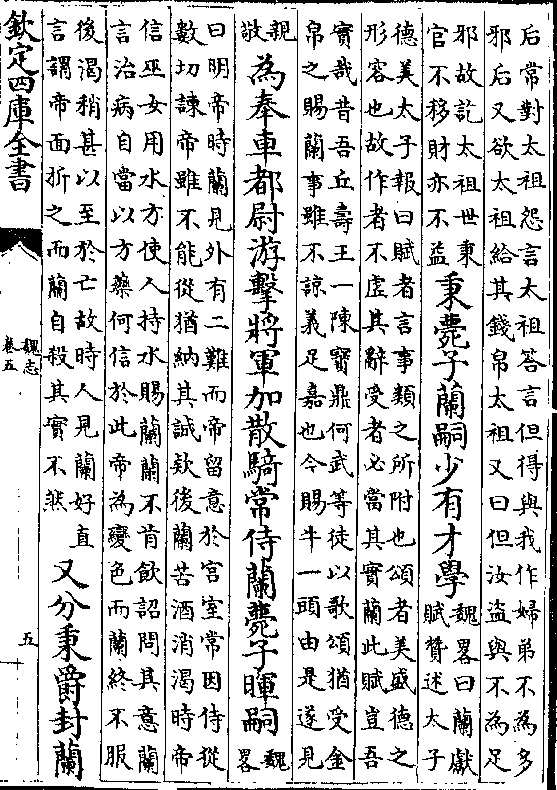 后常對太祖怨言太祖答言但得與我作婦弟不為多
邪后又欲太祖給其錢帛太祖又曰但汝盜與不為足
邪故訖太祖世秉
官不移財亦不益
秉薨子蘭嗣少有才學
魏畧曰蘭獻
賦贊述太子
德美太子報曰賦者言事類之所附也頌者美盛德之
形容也故作者不虛其辭受者必當其實蘭此賦豈吾
實哉昔吾丘壽王一陳寶鼎何武等徒以歌頌猶受金
帛之賜蘭事雖不諒義足嘉也今賜牛一頭由是遂見
親
敬
為奉車都尉游擊將軍加散騎常侍蘭薨子暉嗣
魏
畧
曰明帝時蘭見外有二難而帝留意於宮室常因侍從
數切諫帝雖不能從猶納其誠欵後蘭苦酒消渴時帝
信巫女用水方使人持水賜蘭蘭不肯飲詔問其意蘭
言治病自當以方藥何信於此帝為變色而蘭終不服
後渴稍甚以至於亡故時人見蘭好直
言謂帝面折之而蘭自殺其實不然
又分秉爵封蘭
欽定四庫全書
魏志
卷五
五